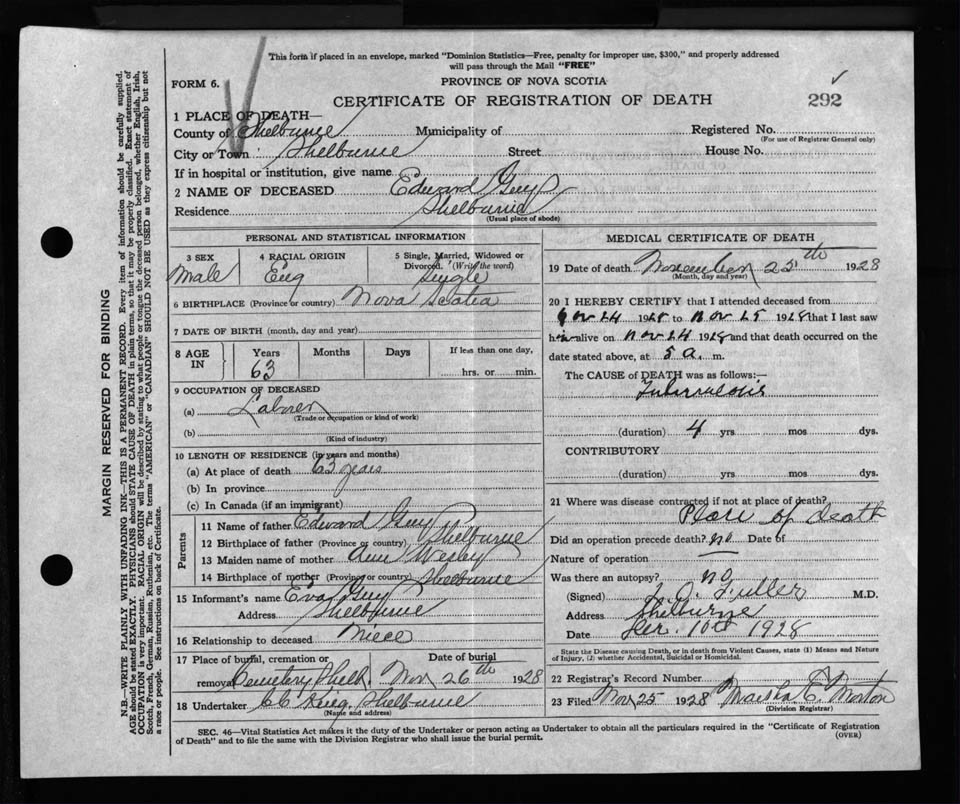 This form if placed in an envelope, marked "Dominion Statistics—Free, penalty for improper use, $300," and properly addressed
will pass through the Mail "FREE"
FORM 6.
PROVINCE OF NOVA SCOTIA
CERTIFICATE OF REGISTRATION OF DEATH
292
1 PLACE OF DEATH—
County of Shelburne Municipality of Registered No.
(For use of Registrar General only)
City or Town Shelburne Street House No.
If in hospital or institution, give name
2 NAME OF DECEASED Edward Guy
Residence Shelburne
(Usual place of abode)
PERSONAL AND STATISTICAL INFORMATION
3 SEX
Male
4 RACIAL ORIGIN
Eng
5 Single, Married, Widowed or
Divorced. (Write the word)
Single
6 BIRTHPLACE (Province or country) Nova Scotia
7 DATE OF BIRTH (month, day and year)
8 AGE
IN
Years Months Days If less than one day,
63 hrs. or min.
9 OCCUPATION OF DECEASED
(a) Laborer
(Trade or occupation or kind of work)
(b)
(Kind of industry)
10 LENGTH OF RESIDENCE (in years and months)
(a) At place of death 63 years
(b) In province
(c) In Canada (if an immigrant)
Parents
11 Name of father Edward Guy
12 Birthplace of father (Province or country) Shelburne
13 Maiden name of mother Ann Wesley
14 Birthplace of mother (Province or country) Shelburne
15 Informant's name Eva Guy
Address Shelburne
16 Relationship to deceased Niece
17 Place of burial, cremation or Date of burial
removal Cemetery Shelb. Nov 26th 1928
18 Undertaker CC King Shelburne
(Name and address)
MEDICAL CERTIFICATE OF DEATH
19 Date of death November 25th 1928
(Month, day and year)
20 I HEREBY CERTIFY that I attended deceased from
Nov 24 1928 to Nov 25 1928 that I last saw
him alive on Nov 24 1928 and that death occurred on the
date stated above, at 5 a. m.
The CAUSE of DEATH was as follows:—
Tuberculosis
(duration) 4 yrs mos dys.
CONTRIBUTORY
(duration) yrs mos dys.
21 Where was disease contracted if not at place of death?
Place of Death
Did an operation precede death? no Date of
Nature of operation —
Was there an autopsy? no
(Signed) Fuller M.D.
Address Shelburne
Date 10th 1928
State the Disease causing Death, or in death from Violent Causes, state (1) Means and Nature
of Injury, (2) whether Accidental, Suicidal or Homicidal.
22 Registrar's Record Number
23 Filed Nov 25 1928 Martha C. Morton
(Division Registrar)
SEC. 46—Vital Statistics Act makes it the duty of the Undertaker or person acting as Undertaker to obtain all the particulars required in the "Certificate of Registration
of Death" and to file the same with the Division Registrar who shall issue the burial permit.
(OVER)
MARGIN RESERVED FOR BINDING
N.B.—WRITE PLAINLY WITH UNFADING INK—THIS IS A PERMANENT RECORD. Every item of information should be carefully supplied.
AGE should be stated EXACTLY. PHYSICIANS should STATE CAUSE OF DEATH in plain terms, so that it may be properly classified. Exact statement of
OCCUPATION is very important. RACIAL ORIGIN will be described by stating to what people or tongue the deceased person belonged, whether English, Irish,
Scotch, French, German, Russian, Ruthenian, etc. The terms "AMERICAN" or "CANADIAN" SHOULD NOT BE USED as they express citizenship but not
a race or people. See instructions on back of Certificate.